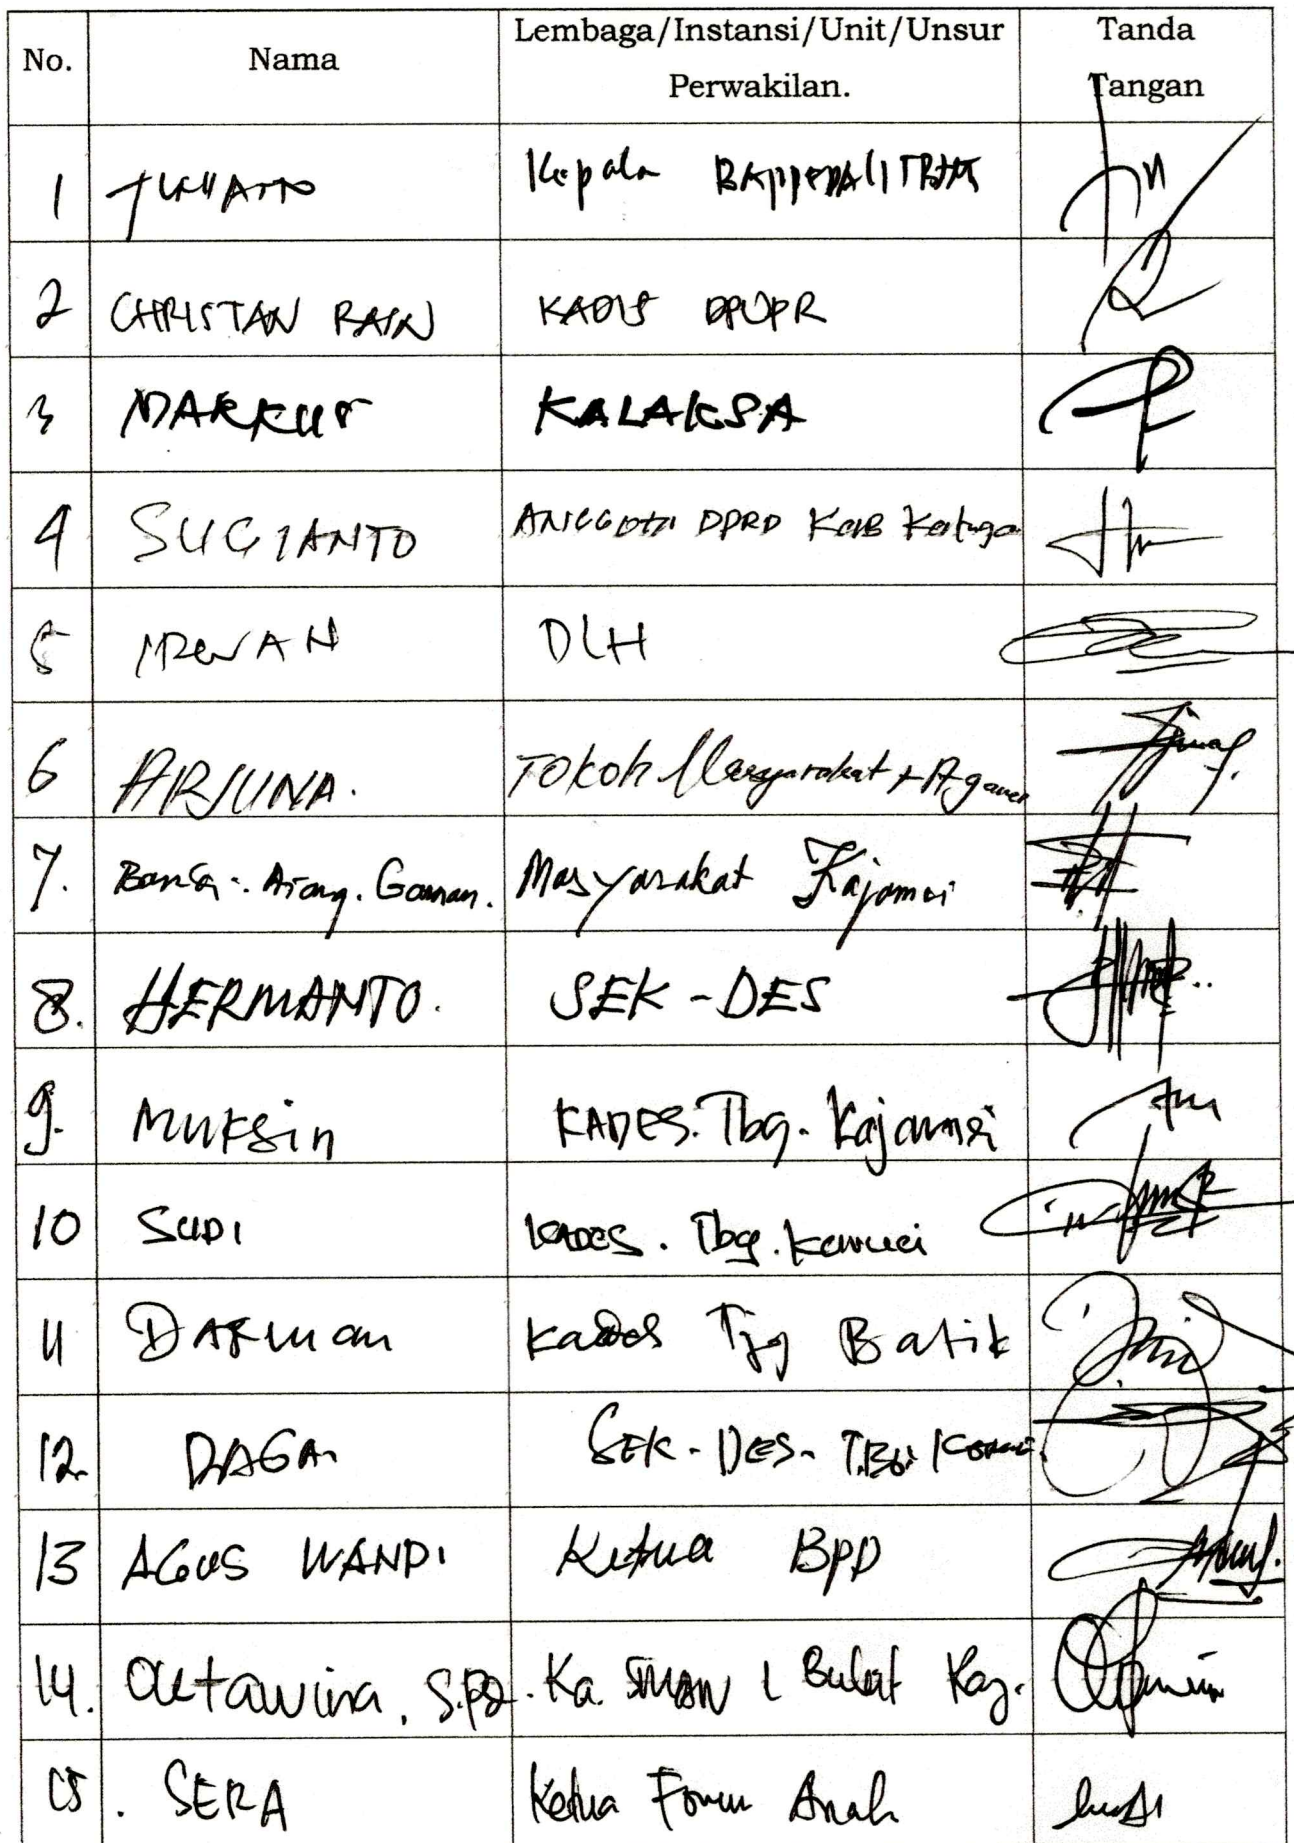 No. Nama Lembaga/Instansi/Unit/Unsur Perwakilan. Tanda Tangan
1 Kepala
2 CHRISTAN RAIN KADIS DPUPR
3 MARKUS KALAKSA
4 SUGIANTO ANGGOTA DPRD Kab
5 IRWAN DLH
6 ARJUNA. Tokoh Masyarakat + Agama
7. Masyarakat Kajamai
8. HERMANTO. SEK-DES
9. Muksin KADES. Tbg. Kajamai
10 SUDI KADES. Tbg.
11 Darman Kades Tjg Batik
12. DAGA. SEK-DES-
13 AGUS WANDI Ketua BPD
14. Oktawina, S.Pd. Ka. SMAN 1
15. SERA Ketua Forum Anak